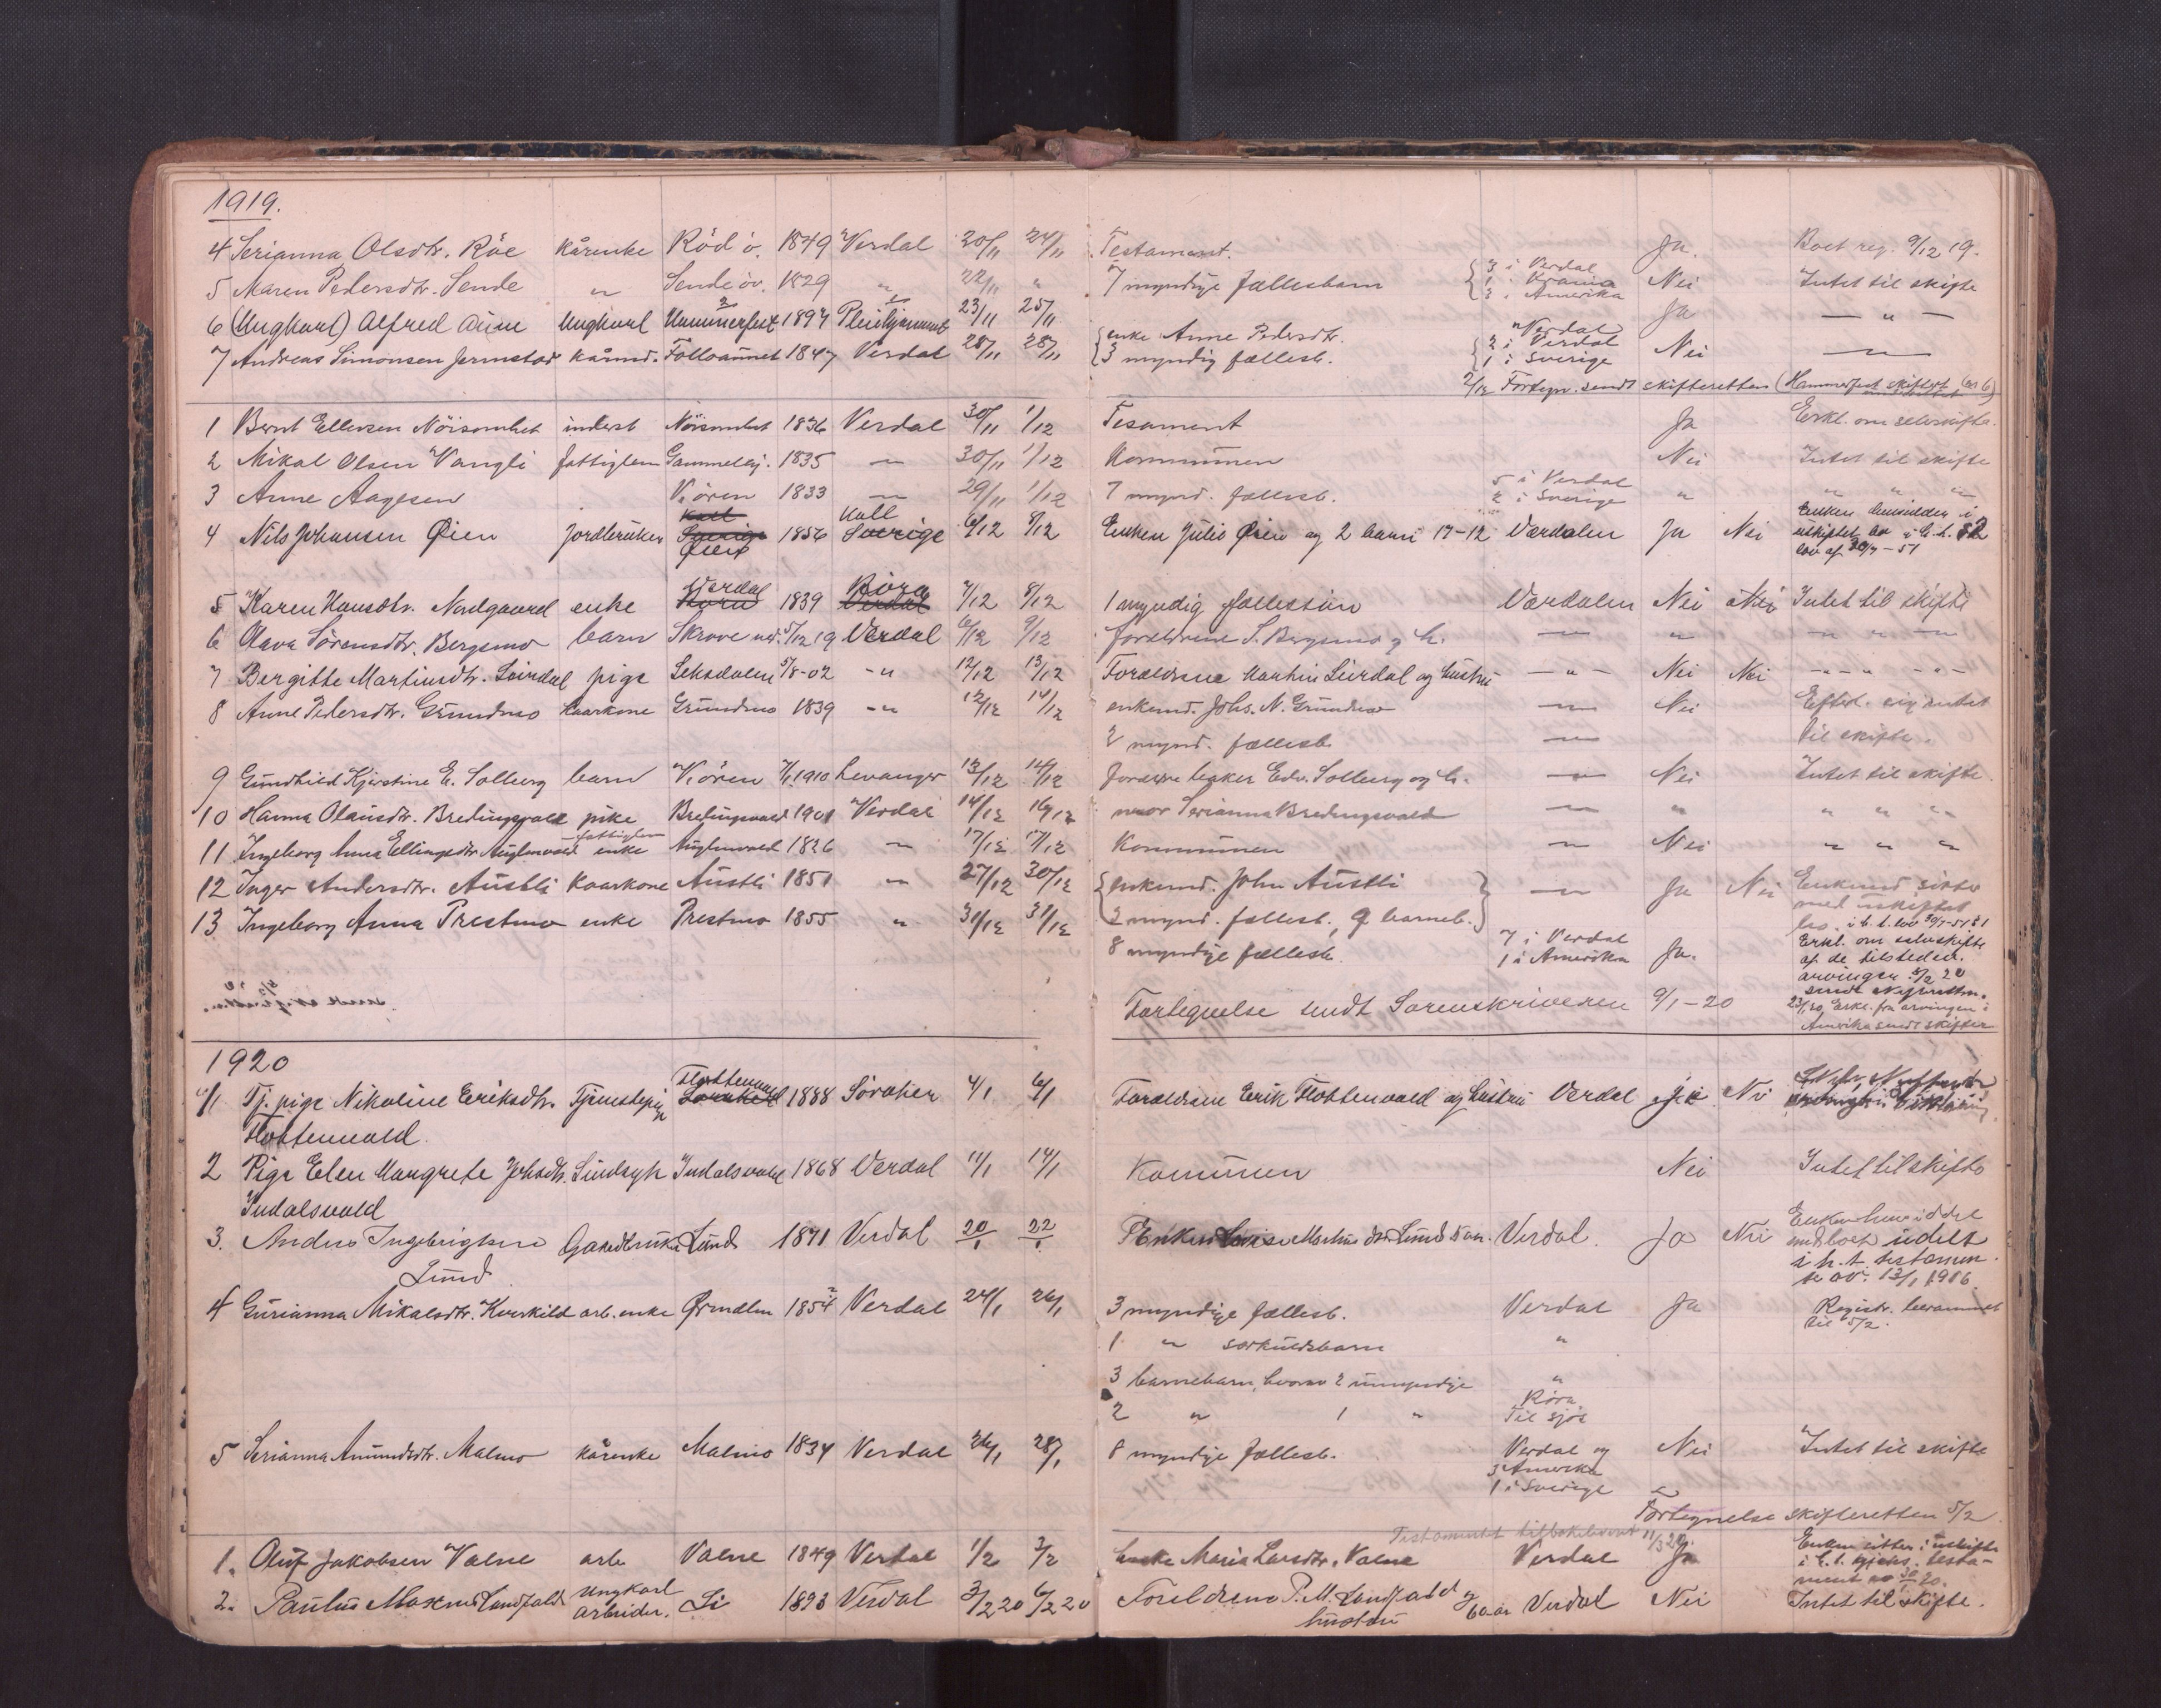 1919.
4 Serianna Olsdtr. Röe kårenke Röd ö. 1849 Verdal 20/11 24/11 Testament. Ja. Boet reg. 9/12 19.
5 Maren Pedersdtr. Sende " Sende öv. 1829 " 22/11 " 7 myndige fællesbarn { 3 i Verdal Nei Intet til skifte
3 i Amerika
6 (Ungkarl) Alfred Aune Ungkarl Hammerfest 1897 23/11 25/11 Ja — " —
7 Andreas Simonsen Jermstad kårmd. 1847 Verdal 28/11 28/11 { enke Anne Pedersdtr. " Verdal Nei — " —
3 myndig fællesb. { 2 i Verdal
1 i Sverige
2/12 Fortegn. sendt skifteretten (Hammerfest skifteret (nr 6)
1 Bernt Ellevsen Nöisomhet inderst Nöisomhet 1836 Verdal 30/11 1/12 Tesament Ja Erkl. om selvskifte.
2 Mikal Olsen Vangli fattiglem 1835 — " — 30/11 1/12 Kommunen Nei Intet til skifte
3 Anne Aagesen V. ören 1833 — " — 29/11 1/12 7 mynd. fællesb. 5 i Verdal " " " "
2 i Sverige
4 Nils Johansen Øien Jordbruker Kall Sverige Øien 1856 Kall Sverige 6/12 8/12 Enken Julie Øien og 2 barn 17-12 Værdalen Ja Nei Enken hensidder i
uskiftet bo i h. t. §2
lov af 30/7-51
5 Karen Hansdtr. Nordgaard enke Verdal 1839 Röra Verdal 7/12 8/12 1 myndig fællessön Værdalen Nei Nei Intet til skifte
6 Olava Sörensdtr. Bergsmo barn Skrove ned. 5/12 19 Verdal 6/12 9/12 foreldrene S. Bergsmo og h. — " — " — " " " —
7 Bergitte Martinsdtr. Leirdal pige Leksdalen 5/8-02 - " 12/12 13/12 Forældrene Martin Leirdal og hustru — " — Nei Nei - " - " - " -
8 Anne Pedersdtr. Grundmo kaarkone Grundmo 1839 - " 12/12 14/12 enkemd. Johs. N. Grundmo — " — Nei Efterl. sig intet
2 mynd. fællesb. — " — til skifte.
9 Gundhild Kjerstine E. Solberg barn V. ören 7/1 1910 Levanger 13/12 14/12 baker Edv. Solberg og h. — " — Nei Intet til skifte.
10 Hanna Olausdtr. Bredingsvald pike Bredingsvald 1901 Verdal 14/12 16/12 mor Serianna Bredingsvald — " — " " " "
11 Ingeborg Anna Ellingsdtr. enke fattiglem 1826 — " — 17/12 17/12 Kommunen — " — Nei " " "
12 Inger Andersdtr. Austli Kaarkone Austli 1851 — " — 27/12 30/12 { enkemd. John Austli } — " — Ja Nei Enkemd. sitter
med uskiftet
3 mynd. fællesb., 9 barneb. bo. i h. t. lov 30/7-51 §1
13 Ingeborg Anna Prestmo enke Prestmo 1855 " 31/12 31/12 8 myndige fællesb. 7 i Verdal Ja. Erkl. om selvskifte
1 i Amerika af de tilstedev.
arvinger 5/2 20
sendt skifteretten.
Fortegnelse sendt Sorenskriveren 9/1-20 Erkl. fra arvingen i
Amerika sendt skifter.
1920
1 Tj. pige Nikoline Eriksdtr. Tjenestepige Flottenvald 1888 Söraker 4/1 6/1 Forældrene Erik Flottenvald og hustru Verdal Nei
Flottenvald.
2 Pige Elen Margrete Johsdtr. Sindsyk Indalsvald 1868 Verdal 11/1 14/1 Kommunen Nei Intet til skifte
Indalsvald
3. Andres Ingebrigtsen Gardbruker Lund 1871 Verdal 20/1 22/1 Enken Louise Lund Verdal. Ja Nei Enken hensiddel
Lund med boet udelt
i h. t. testamen
te av. 13/1 1906.
4 Gurianna Mikalsdtr. Kverkild arb. enke Ørmelen 1854 Verdal 24/1 26/1 3 myndige fællesb. Verdal Ja Registr. berammet
til 5/2.
1 " særkuldsbarn "
3 barnebarn, hvorav 2 umyndige "
Röra
2 " 1 " Til sjös
5 Serianna Amundsdtr. Malmo kårenke Malmo 1834 Verdal 26/1 28/1 8 myndige fællesb. Verdal og Nei Intet til skifte
3 Amerika
1 i Sverige
Fortegnelse skifteretten 5/2
Testamentet tilbakelevert 11/3 20.
1. Oluf Jakobsen Valne arb. Valne 1849 Verdal 1/2 3/2 Enke Maria Larsdtr. Valne Verdal Ja Enken sitter i uskifte
i h. t. testa-
ment
2. Paulus Landfald Ungkarl Li 1893 Verdal 3/2 20 6/2 20 Foreldrene P. M. Landfald og Verdal Nei Intet til skifte.
arbeider. hustru